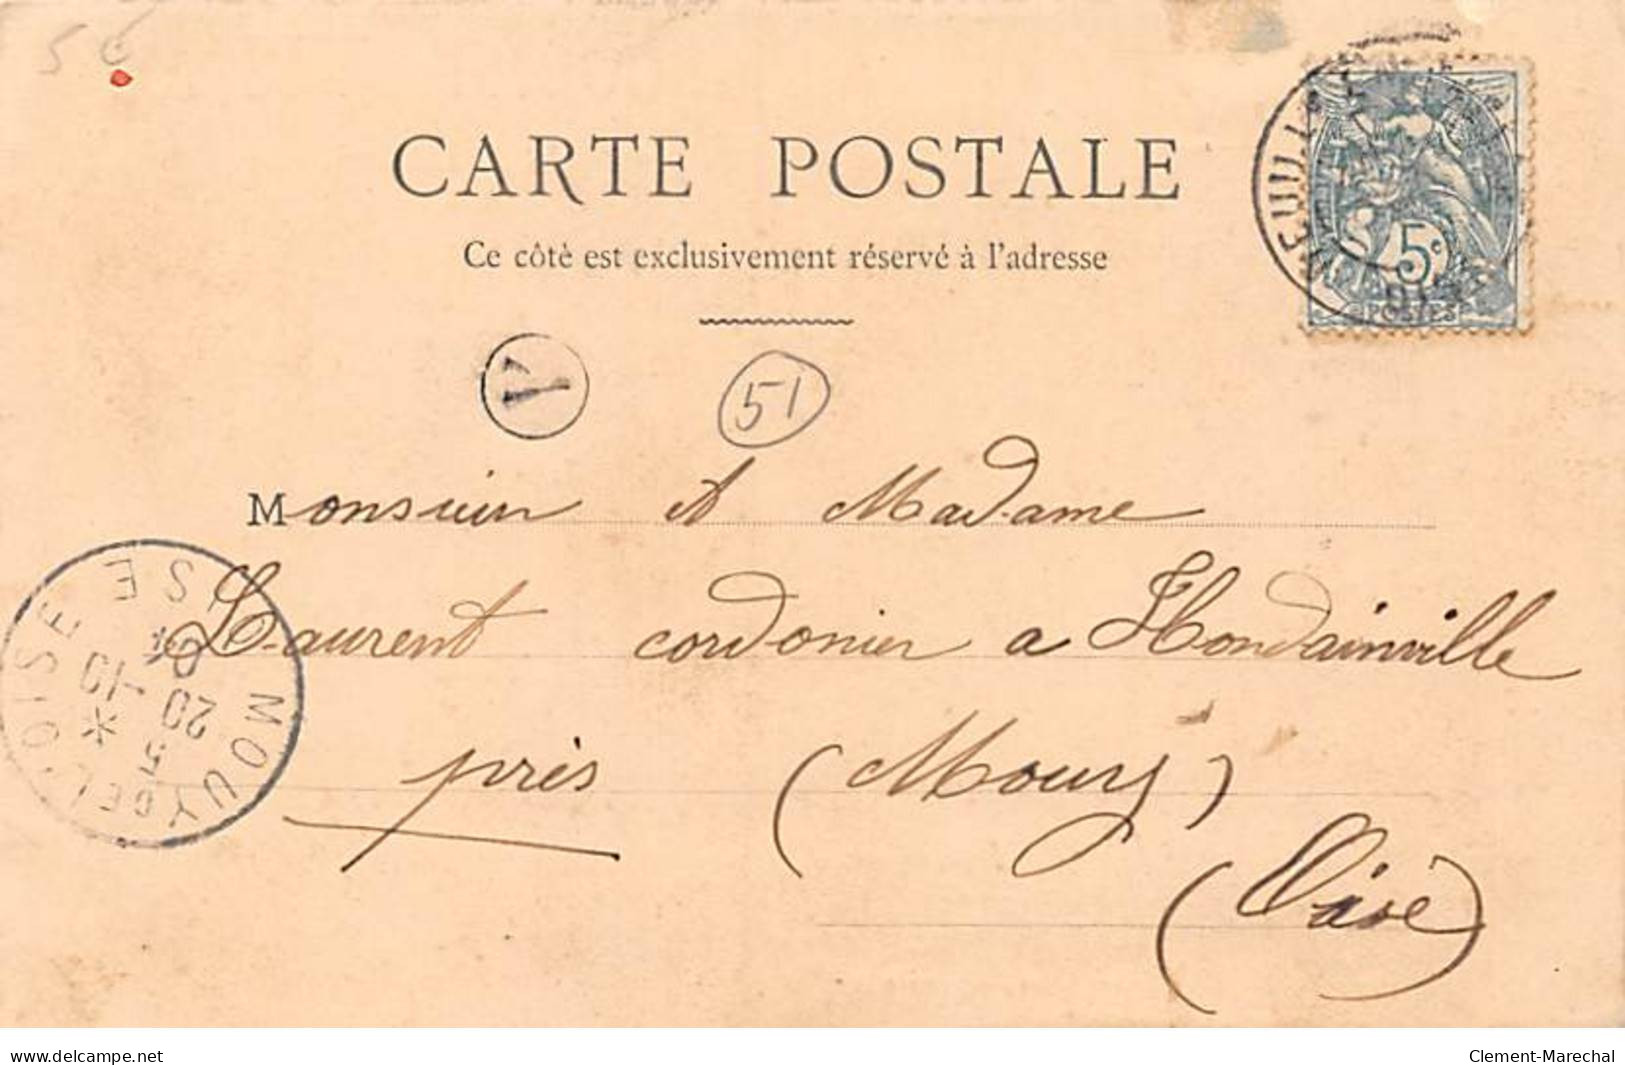 56
CARTE POSTALE
Ce côté est exclusivement réservé à l'adresse
5c
POSTES
Y
51
Monsieur et Madame
Laurent cordonier a Hondainville
près (Mouy)
(Oise)
MOUY DE L'OISE
OISE
20
-10
delcampe.net
Clement-Marechal